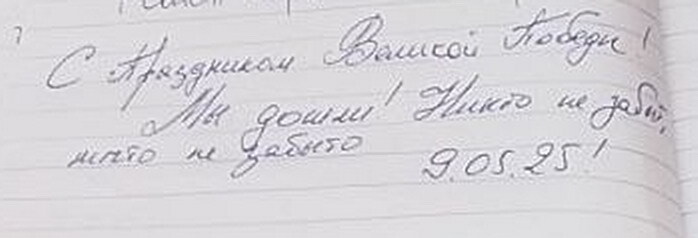 С Праздником Великой Победы!
Мы дошли! Никто не забыт,
ничто не забыто
9.05.25!